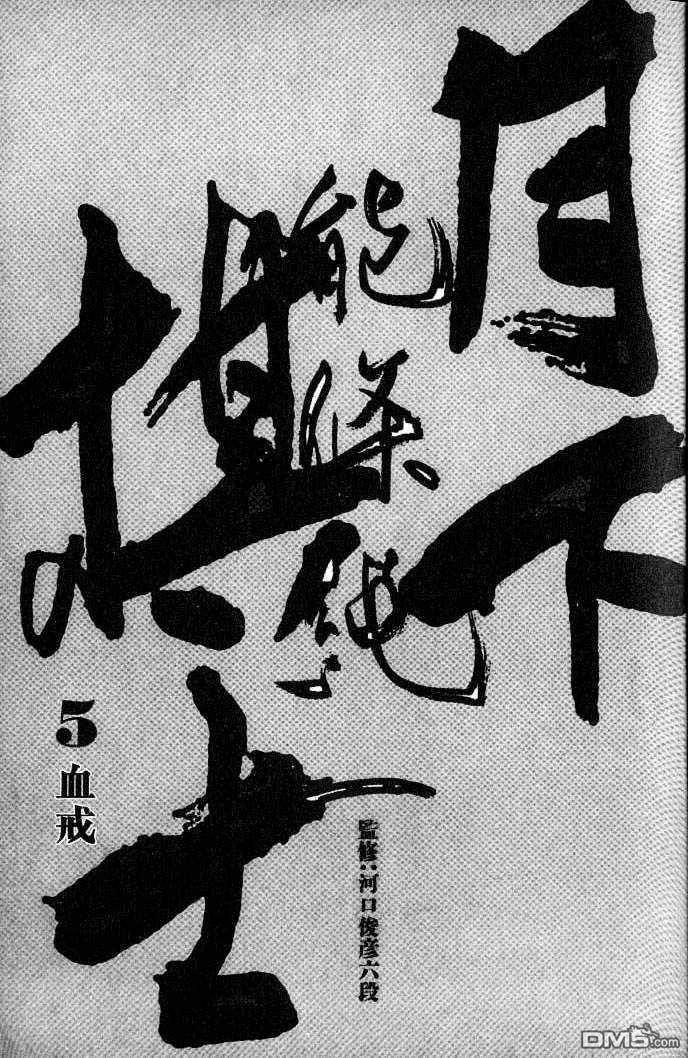 月下
棋士
能條純一
5 血戒
監修：河口俊彦六段
DM5.com